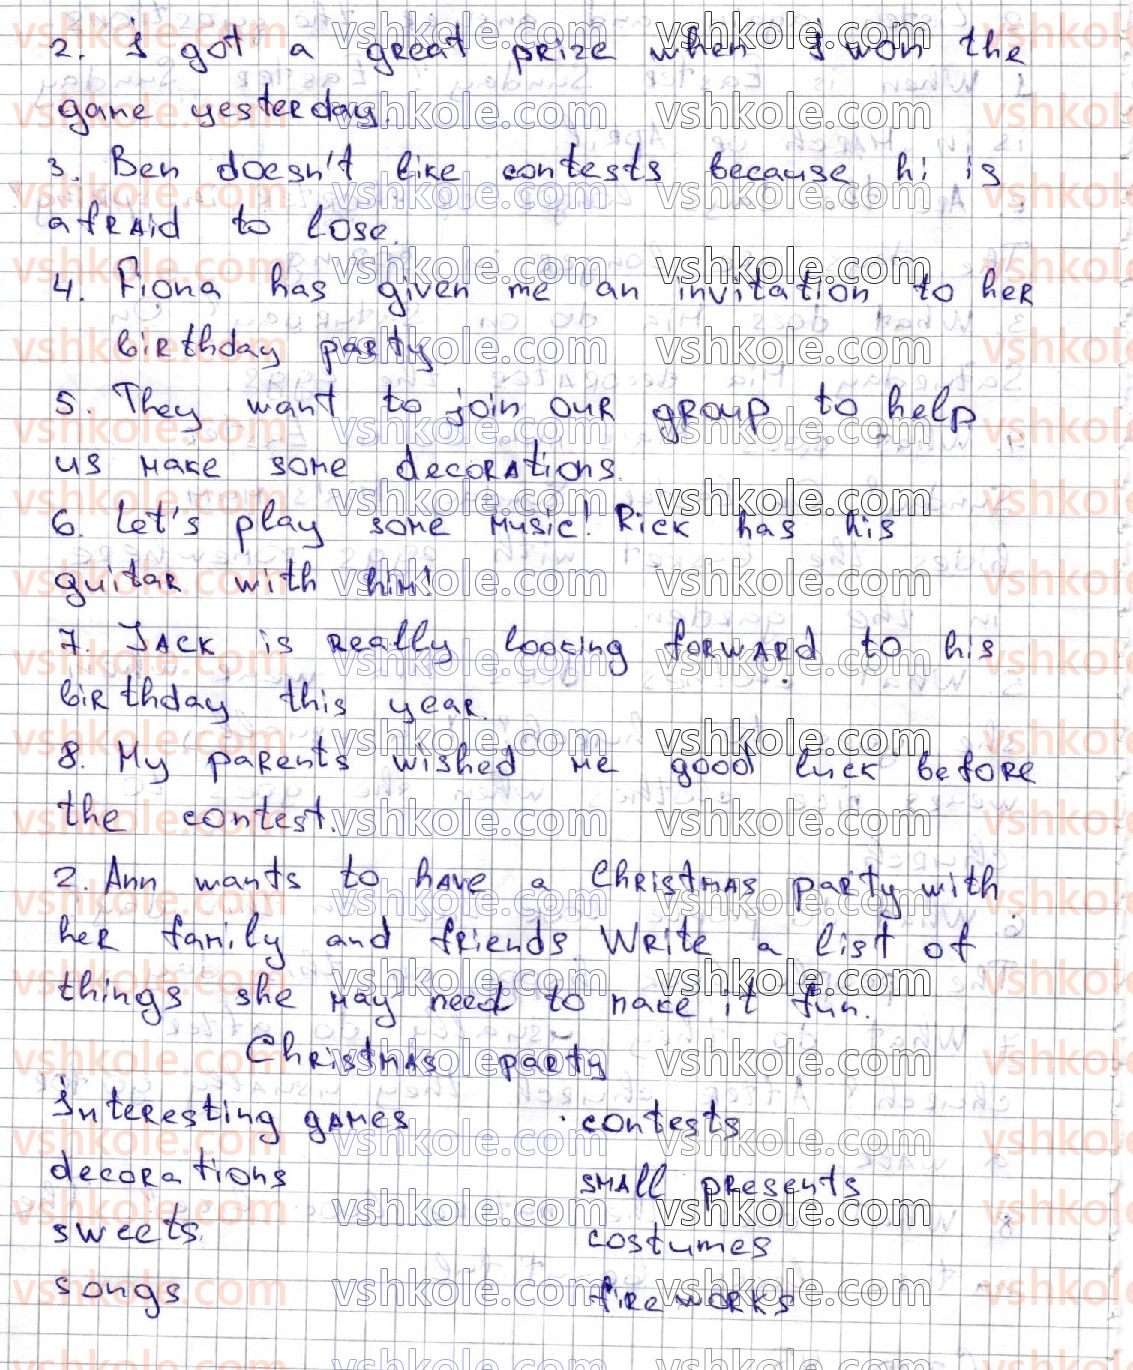 2. I got a great prize when I won the
game yesterday.
3. Ben doesn't like contests because hi is
afraid to lose.
4. Fiona has given me an invitation to her
birthday party
5. They want to join our group to help
us make some decorations.
6. Let's play some music! Rick has his
guitar with him!
7. Jack is really looking forward to his
birthday this year.
8. My parents wished me good luck before
the contest.
2. Ann wants to have a Christmas party with
her family and friends. Write a list of
things she may need to make it fun.
Christmas party
Interesting games contests
decorations small presents
sweets costumes
songs fireworks
vshkole.com